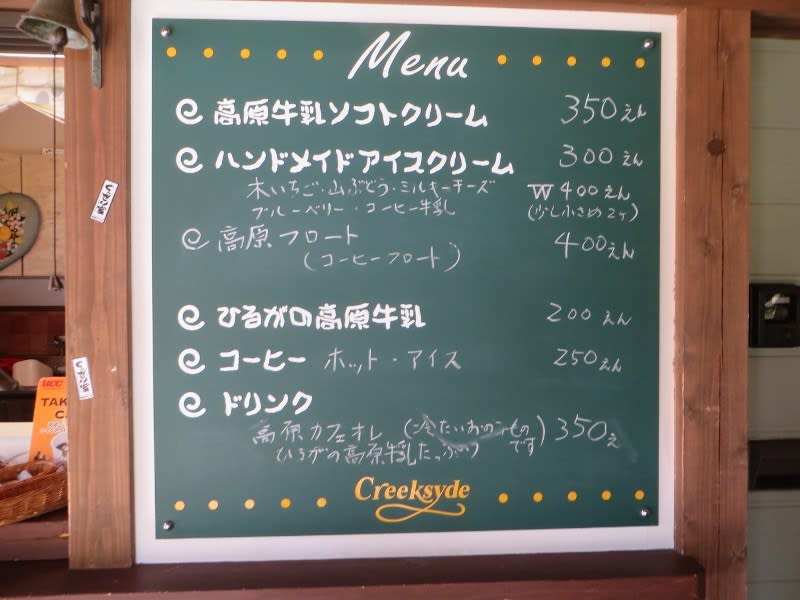 Menu
高原牛乳ソフトクリーム 350えん
ハンドメイドアイスクリーム 300えん
木いちご・山ぶどう・ミルキーチーズ W400えん
ブルーベリー・コーヒー牛乳 (少し小さめ2ヶ)
高原フロート 400えん
(コーヒーフロート)
ひるがの高原牛乳 200えん
コーヒー ホット・アイス 250えん
ドリンク
高原カフェオレ (冷たいおのみもの です) 350え
(ひるがの高原牛乳たっぷり)
Creeksyde
UCC
TAK